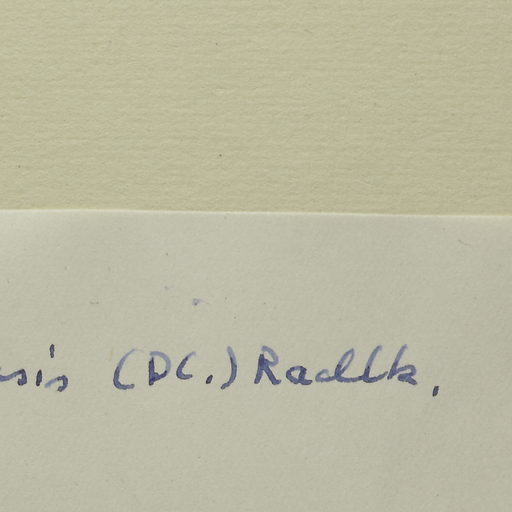 sis (DC.) Radlk.